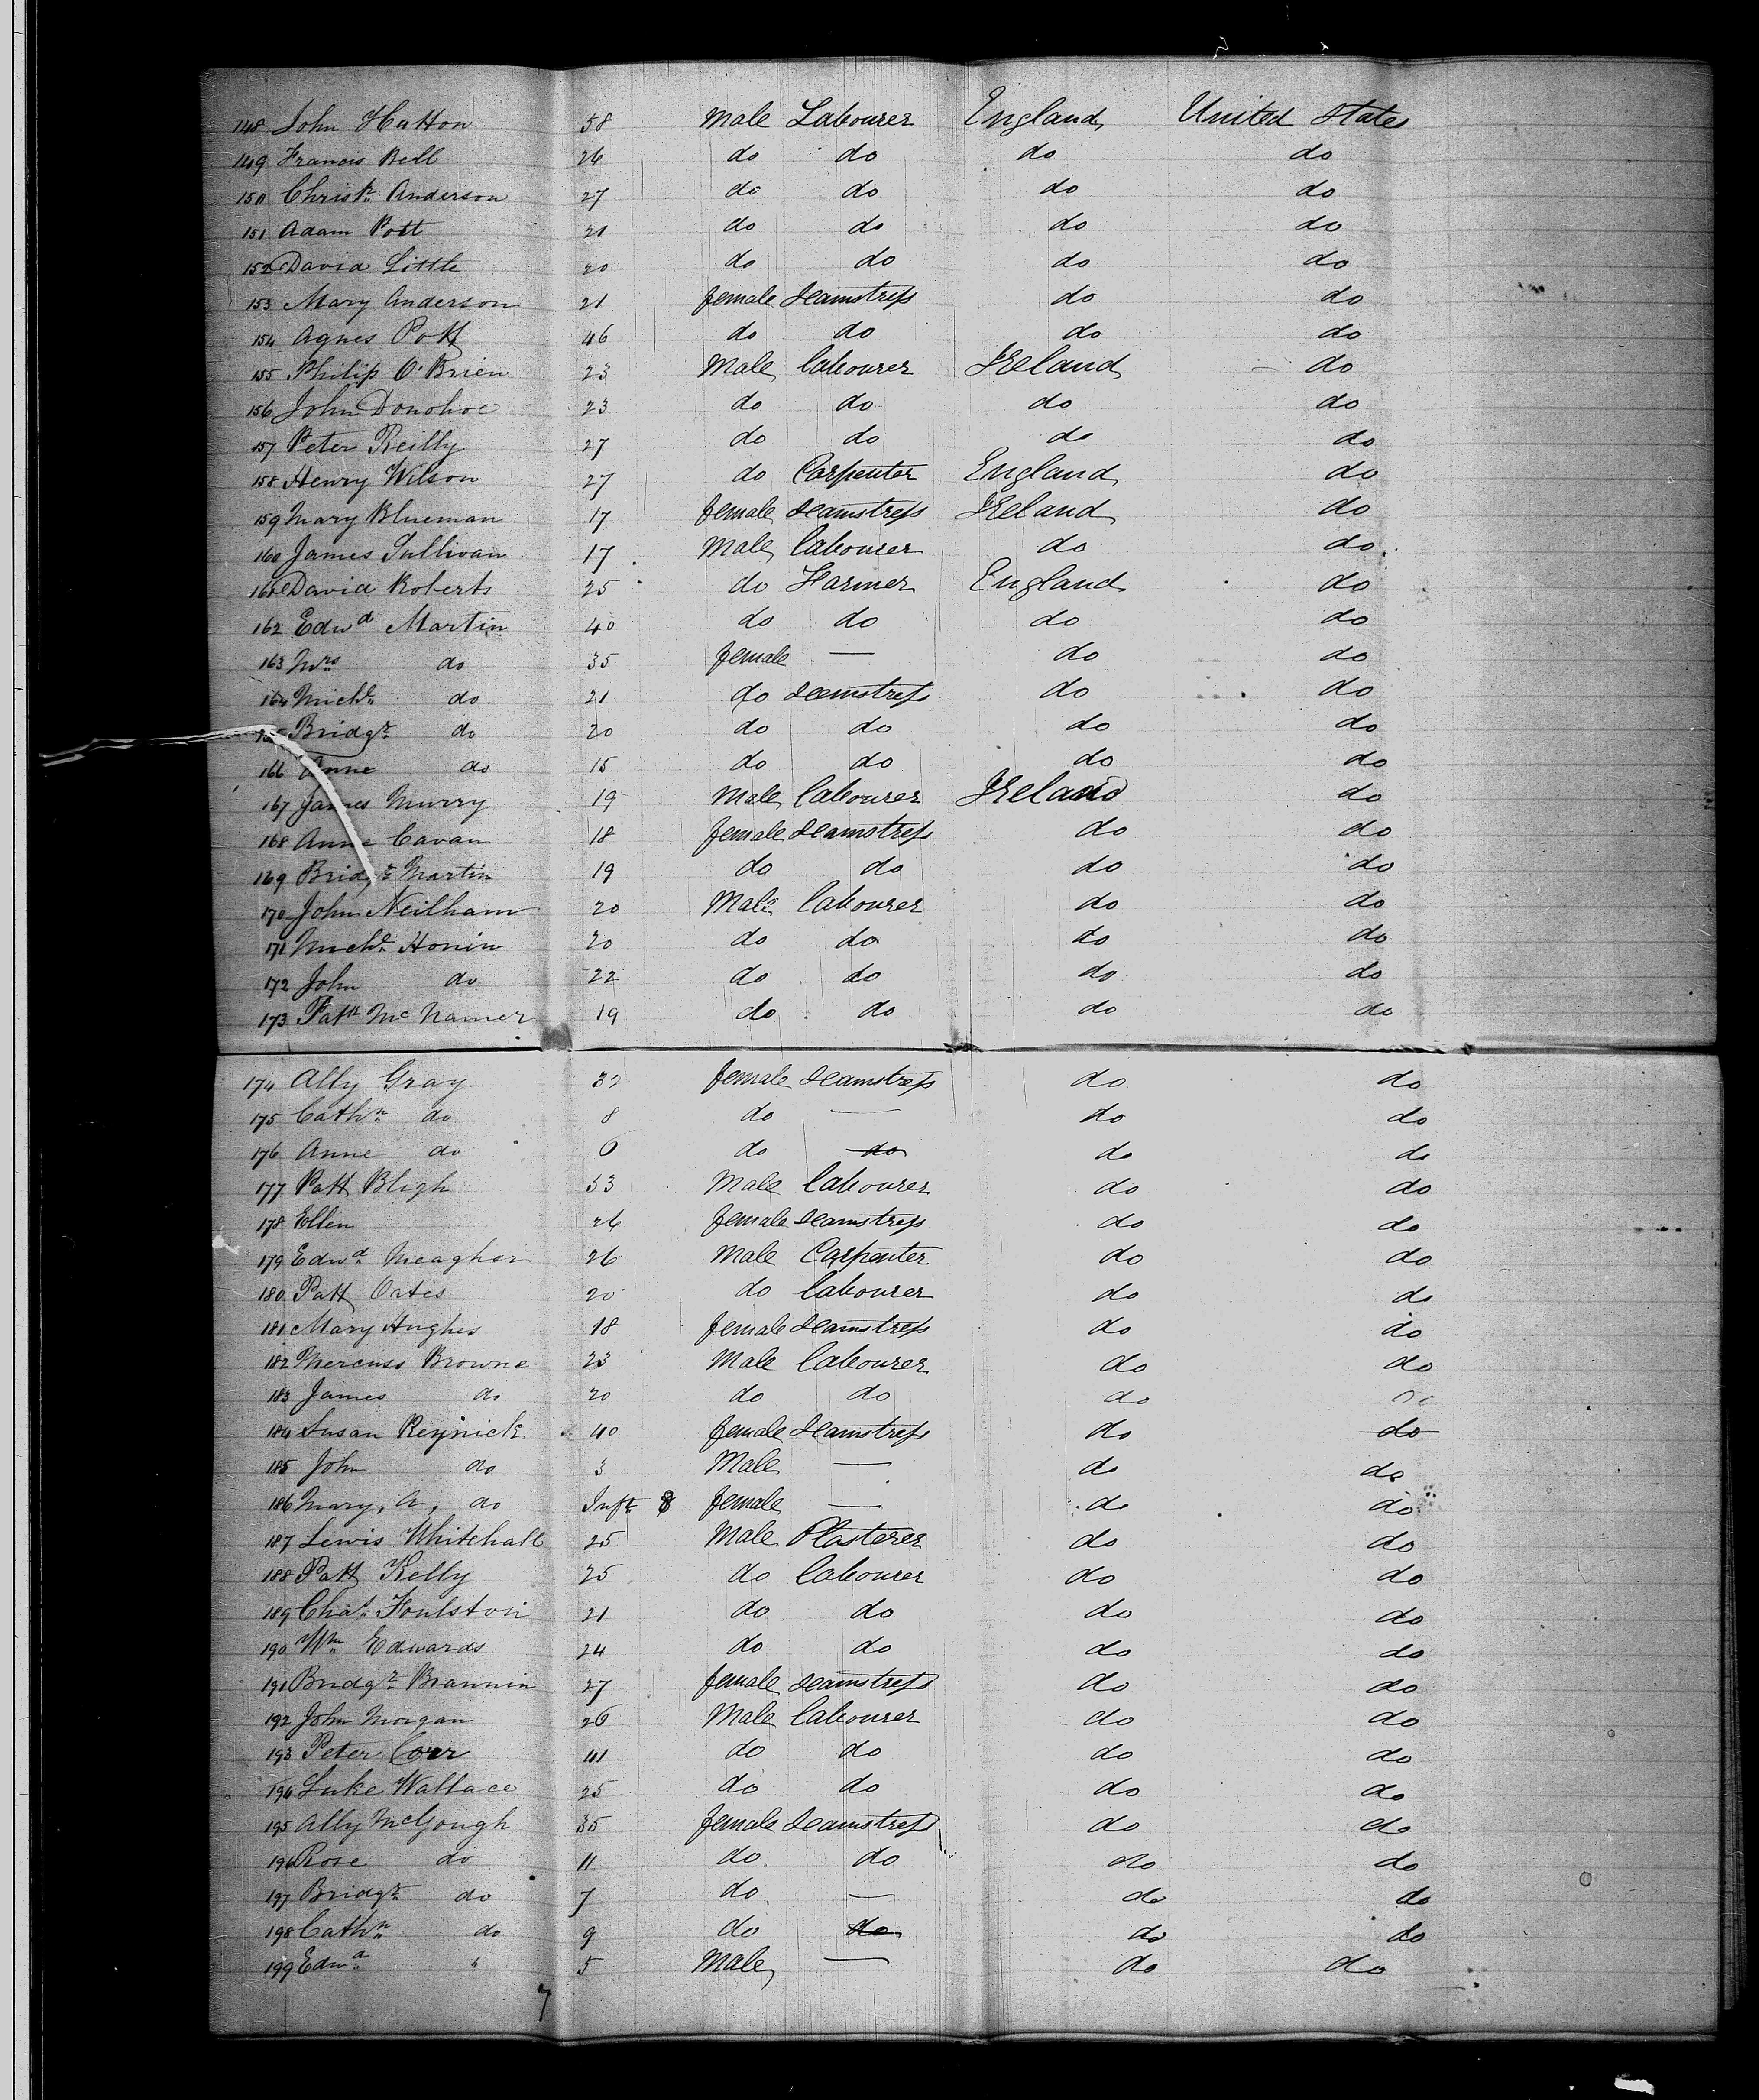 148 John Hatton 58 Male Labourer England United States
149 Francis Bell 26 do do do do
150 Christr Anderson 27 do do do do
151 Adam Pott 21 do do do do
152 David Little 20 do do do do
153 Mary Anderson 21 female Seamstress do do
154 Agnes Pott 46 do do do do
155 Philip O'Brien 23 Male labourer Ireland do
156 John Donohoe 23 do do do do
157 Peter Reilly 27 do do do do
158 Henry Wilson 27 do Carpenter England do
159 Mary Blueman 17 female Seamstress Ireland do
160 James Sullivan 17 Male labourer do do
161 David Roberts 25 do Farmer England do
162 Edwd Martin 40 do do do do
163 Mrs do 35 female — do do
164 Michl do 21 do Seamstress do do
165 Bridgt do 20 do do do do
166 Anne do 15 do do do do
167 James Murry 19 Male labourer Ireland do
168 Anne Cavan 18 female Seamstress do do
169 Bridgt Martin 19 do do do do
170 John Neilham 20 Male labourer do do
171 Michl Honin 20 do do do do
172 John do 22 do do do do
173 Patk McNamer 19 do do do do
174 Ally Gray female Seamstress do do
175 Cathn do 8 do — do do
176 Anne do 6 do do do do
177 Patt Bligh 53 Male labourer do do
178 Ellen 26 female Seamstress do do
179 Edwd Meagher 26 Male Carpenter do do
180 Patt Oates 20 do labourer do do
181 Mary Hughes 18 female Seamstress do do
182 Mercuss Browne 23 Male labourer do do
183 James do 20 do do do do
184 Susan Reynick 40 female Seamstress do do
185 John do 3 Male — do do
186 Mary, A, do Inft 8 female — do do
187 Lewis Whitehall 25 Male Plasterer do do
188 Patt Kelly 25 do labourer do do
189 Chas Foulston 21 do do do do
190 Wm Edwards 24 do do do do
191 Bridgt Brannin 27 female Seamstress do do
192 John Morgan 26 Male labourer do do
193 Peter Corr 41 do do do do
194 Luke Wallace 25 do do do do
195 Ally McGough 35 female Seamstress do do
196 Rose do 11 do do do do
197 Bridgt do 7 do — do do
198 Cathn do 9 do do do do
199 Edwd " 5 Male — do do
7